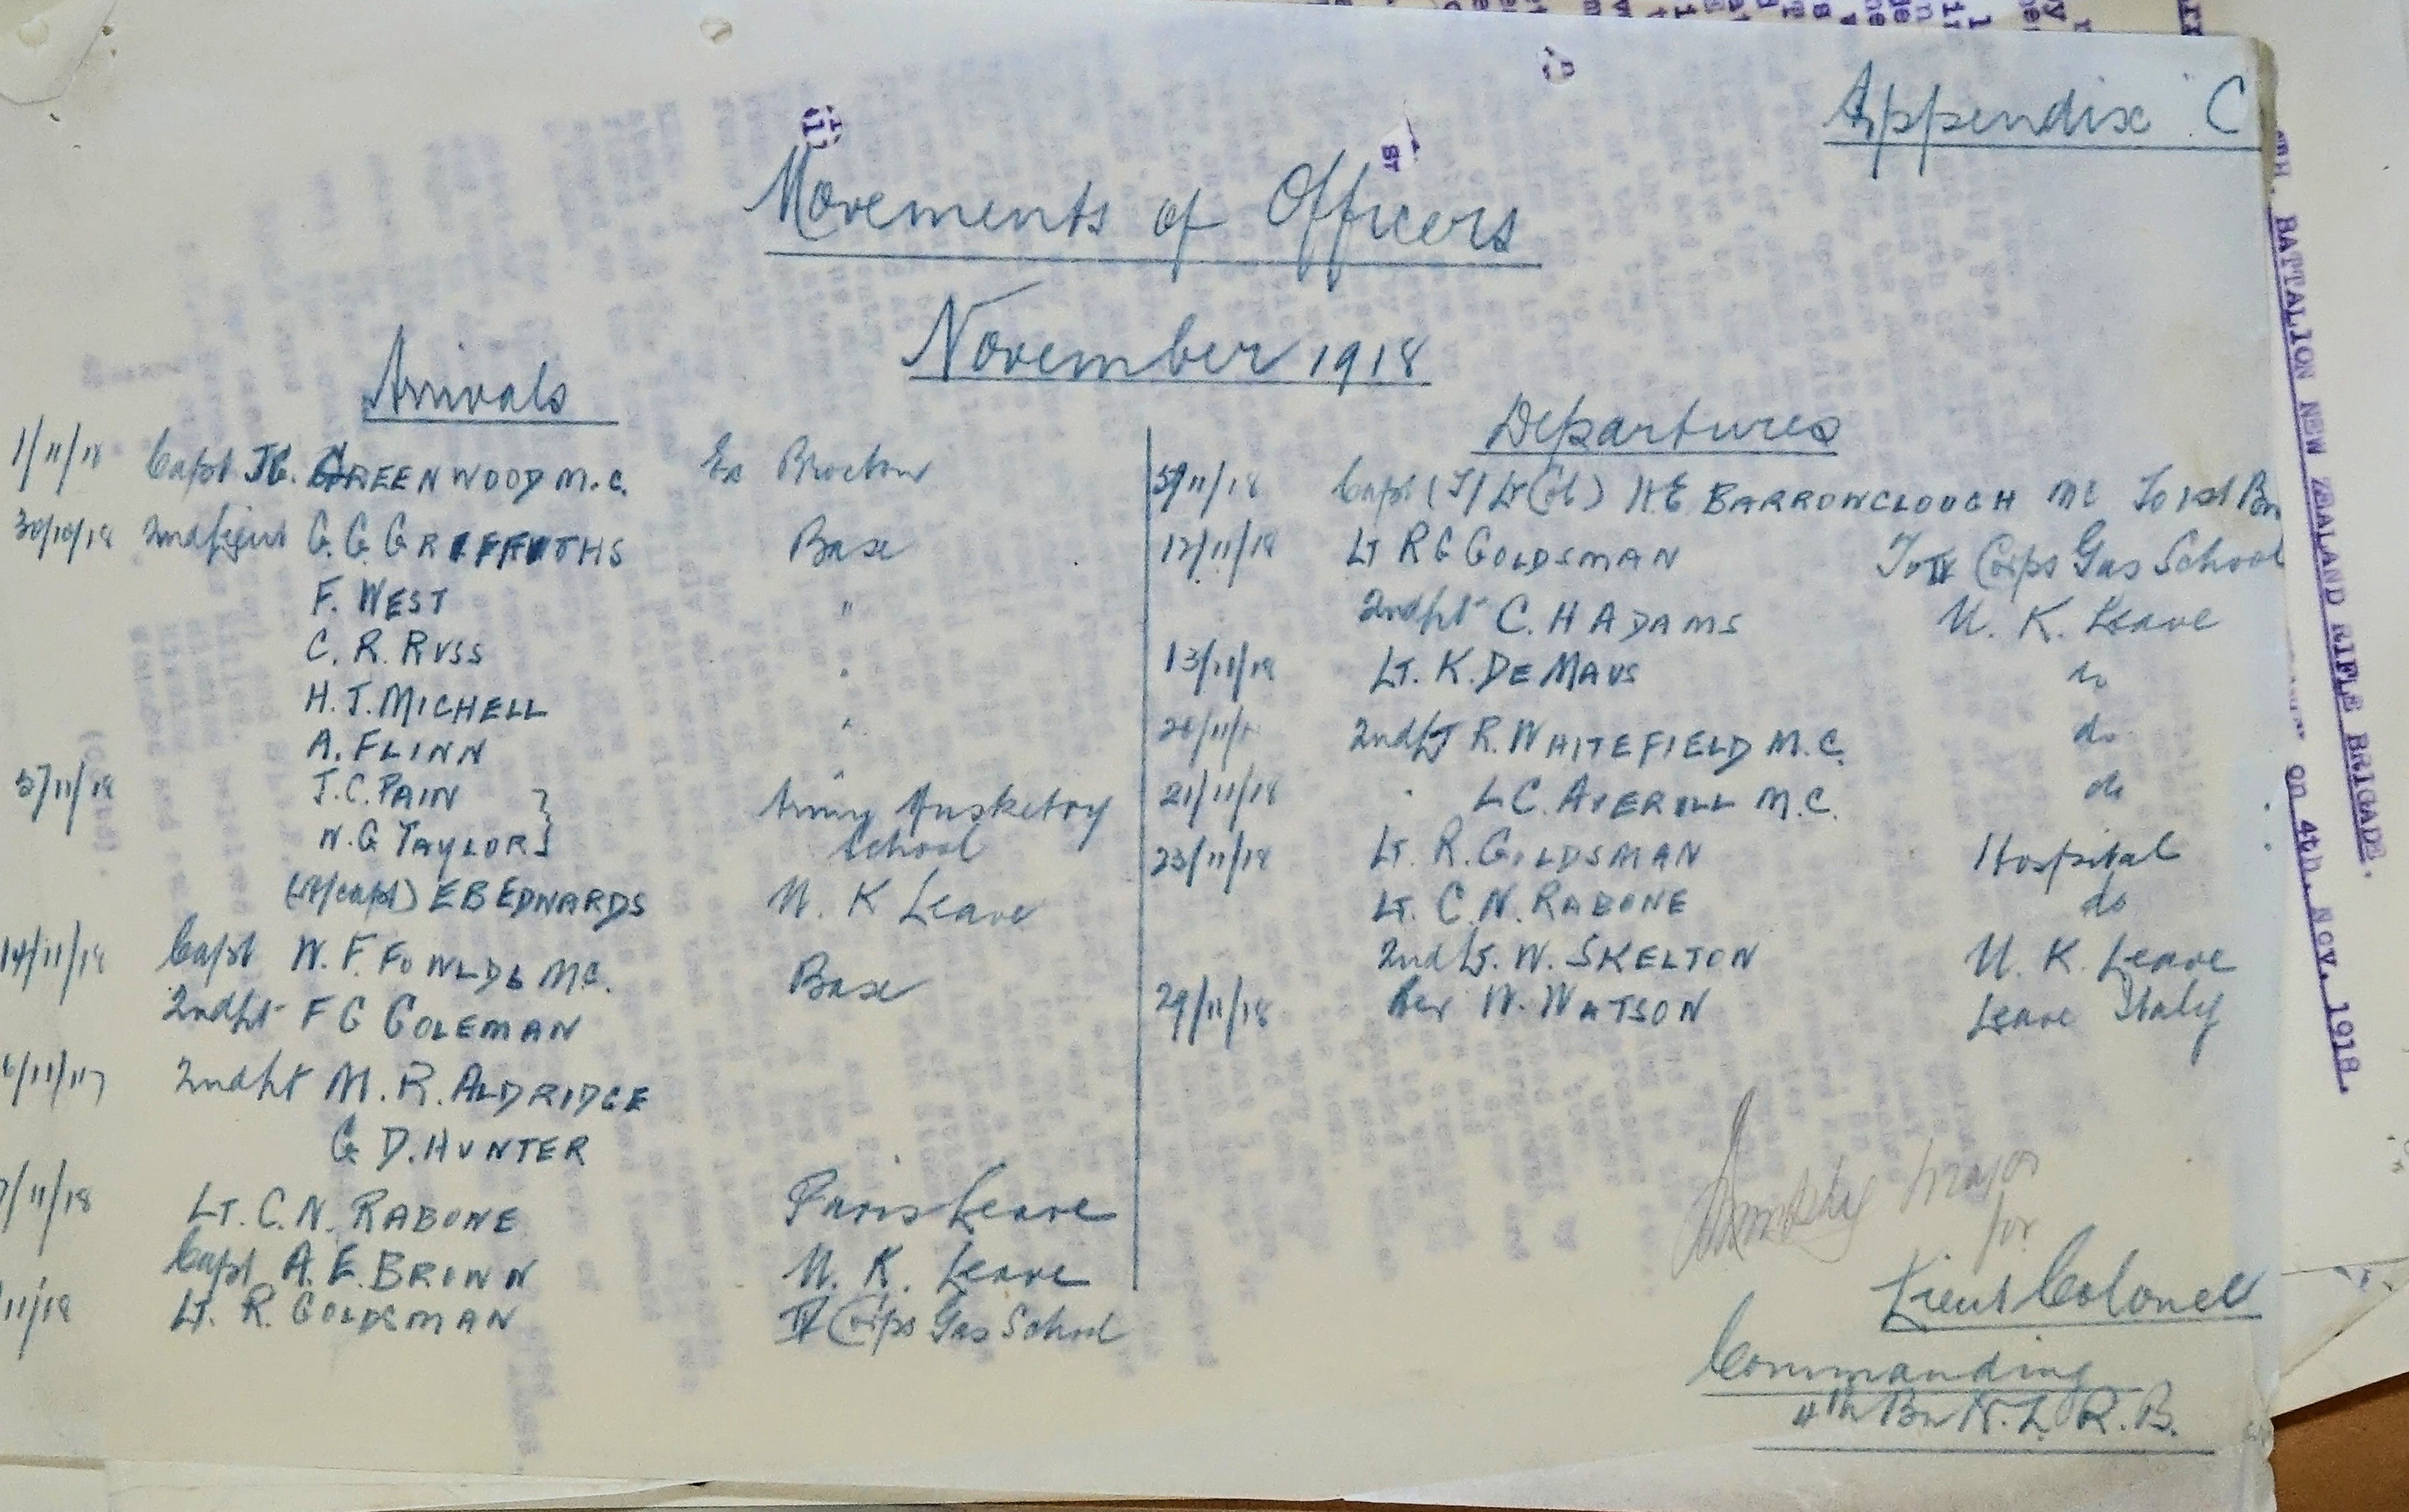 Appendix "C
Movements of Officers
November 1918
Arrivals
1/11/18 Capt J.G. GREENWOOD M.C. Ex Brocton
30/10/18 2nd Lieut G. G. GRIFFITHS Base
F. WEST "
C. R. RUSS "
H. J. MICHELL "
A. FLINN "
5/11/18 J. C. PAIN } Army Musketry
N. G TAYLOR } School
(T/Capt) E B EDWARDS U. K Leave
14/11/18 Capt W. F. FOWLDS M.C. Base
2nd Lt F G COLEMAN
6/11/17 2nd Lt M. R. ALDRIDGE
G D. HUNTER
/11/18 LT. C. N. RABONE Paris Leave
Capt A. E. BROWN U. K. Leave
11/18 Lt. R. GOLDSMAN IV Corps Gas School
Departures
5/11/18 Capt (T/Lt Col) H E BARROWCLOUGH MC To 1st Bn
12/11/18 LT R G GOLDSMAN To IV Corps Gas School
2nd Lt C. H ADAMS U. K. Leave
13/11/18 LT. K. DE MAUS do
20/11/1 2nd LT R. WHITEFIELD M.C. do
21/11/18 " L C. AVERILL M.C. do
23/11/18 LT. R. GOLDSMAN Hospital
LT. C. N. RABONE do
2nd Lt. W. SKELTON U. K. Leave
29/11/18 Rev W. WATSON Leave Italy
Major
for
Lieut Colonel
Commanding
4th Bn N. Z. R. B.
BATTALION NEW ZEALAND RIFLE BRIGADE.
on 4th. Nov. 1918.